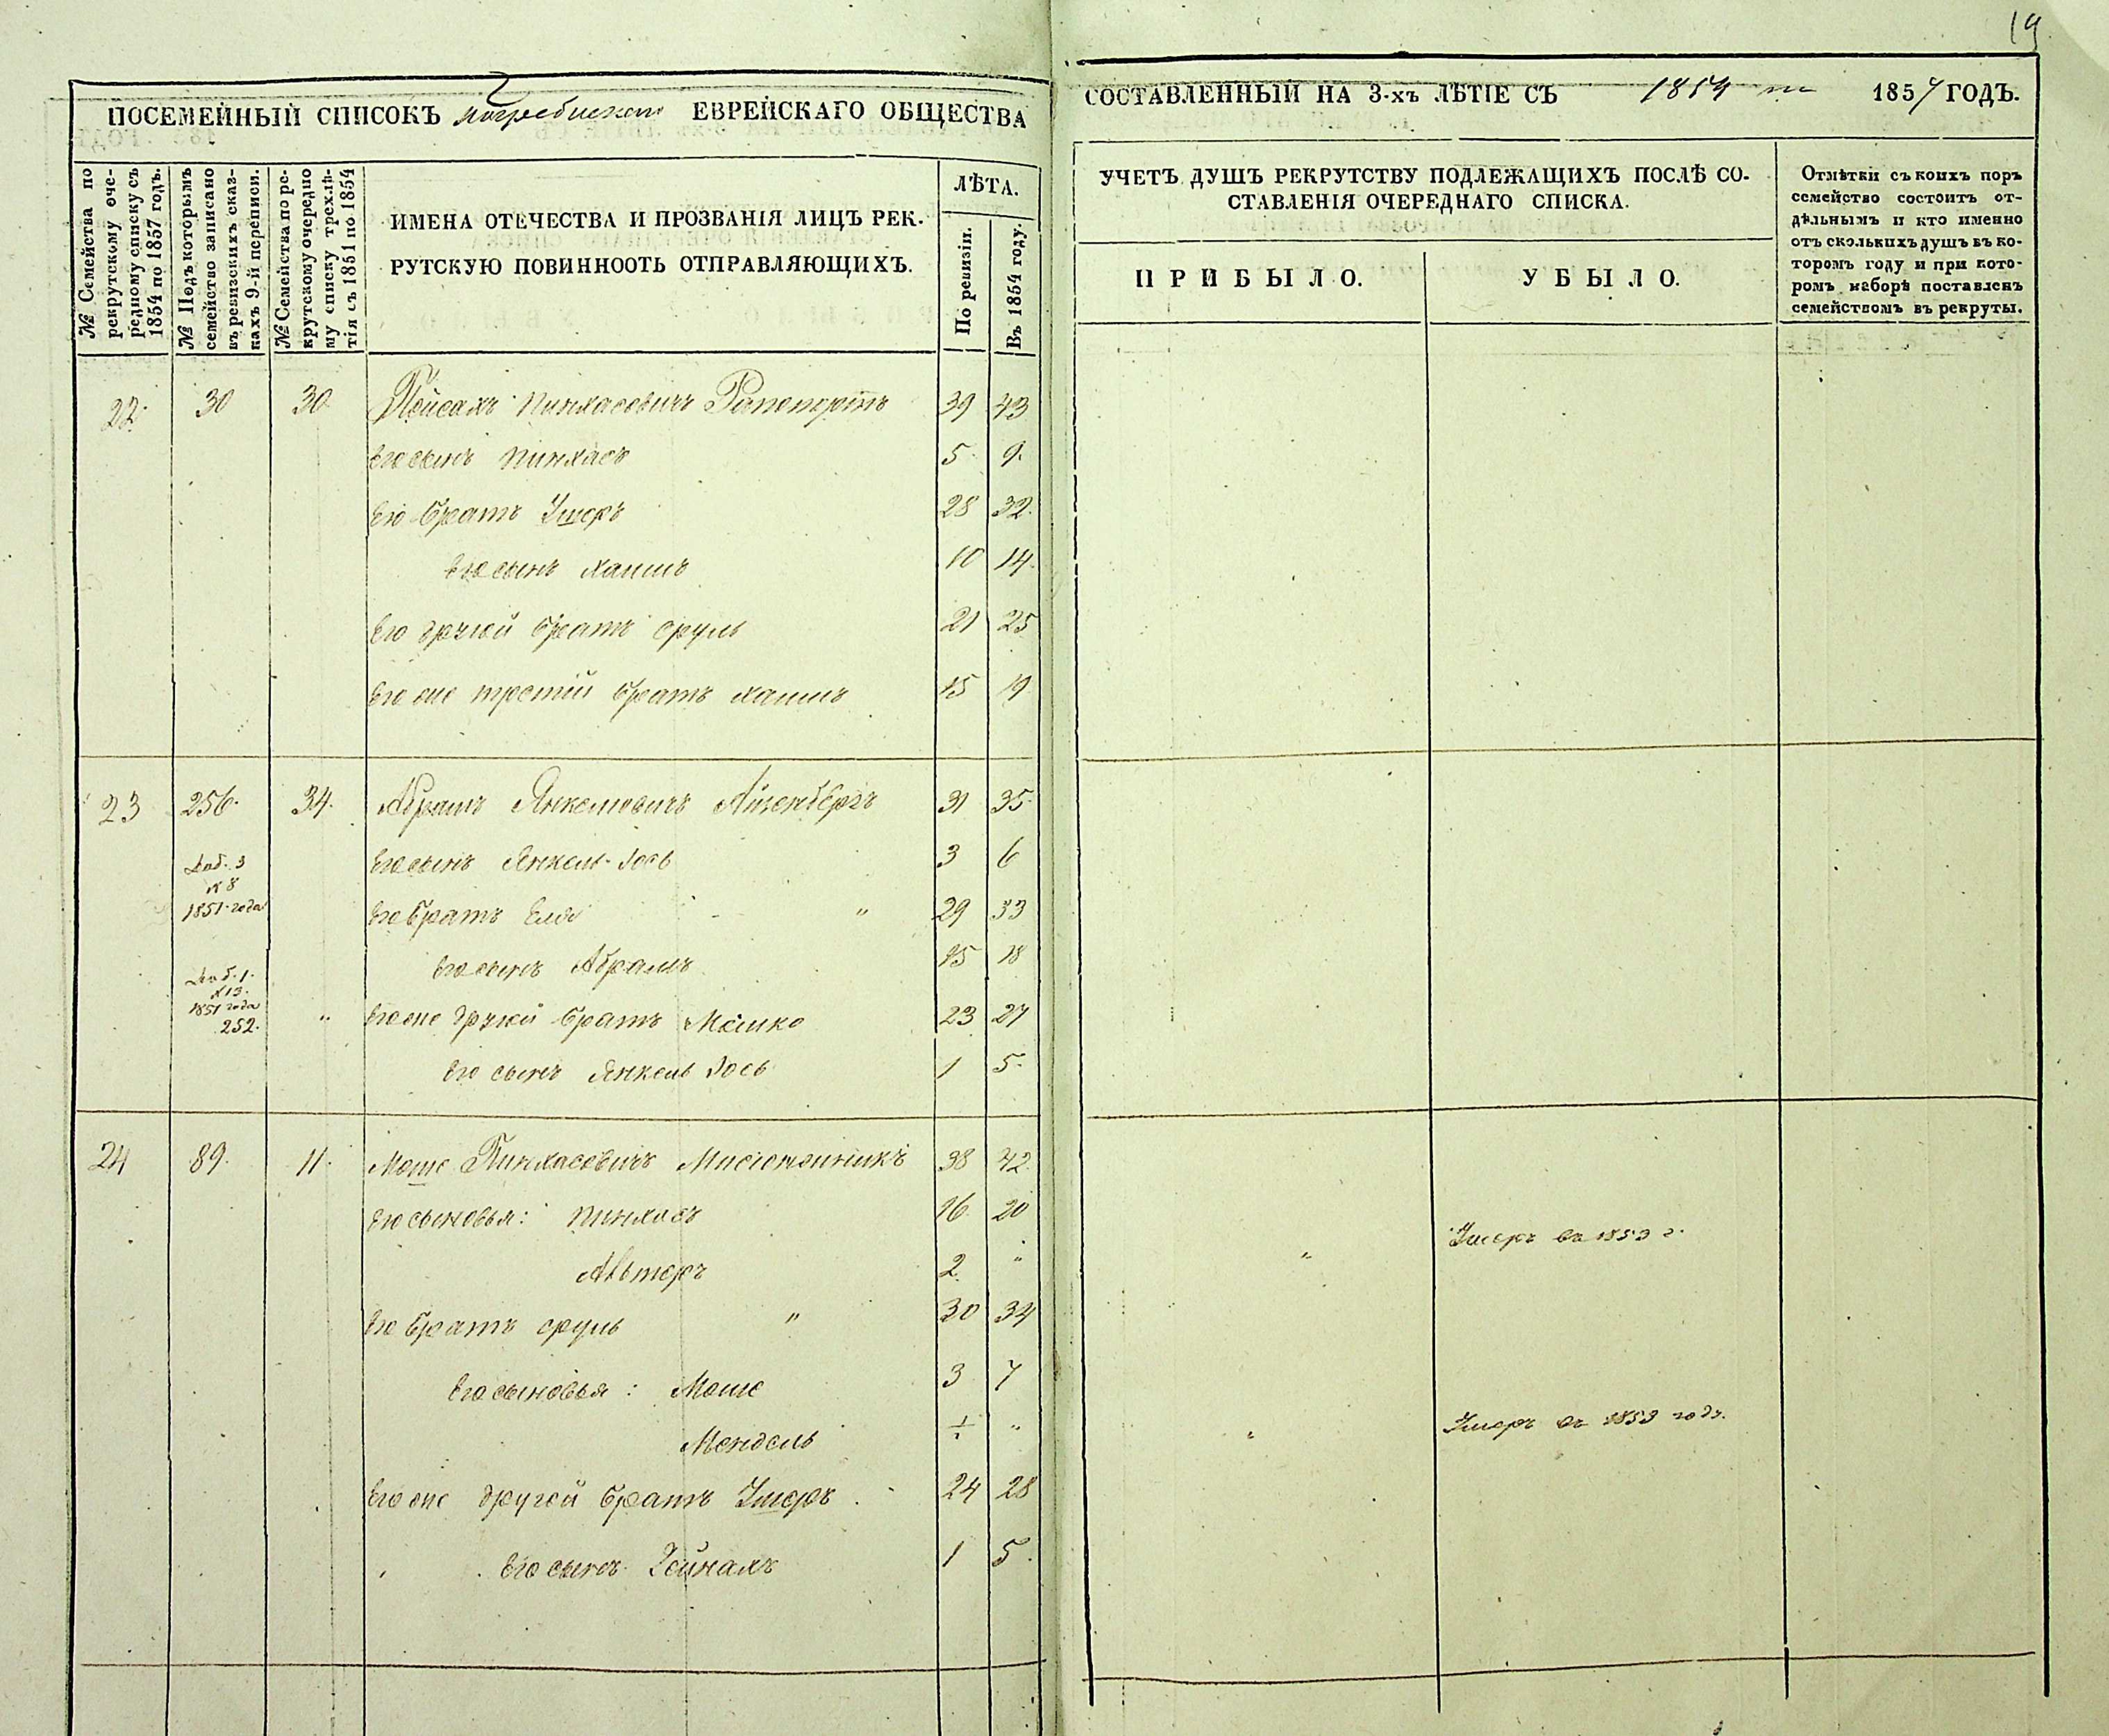 19
ПОСЕМЕЙНЫЙ СПИСОКЪ погребискаго ЕВРЕЙСКАГО ОБЩЕСТВА
СОСТАВЛЕННЫЙ НА 3-хъ ЛѢТІЕ СЪ 1854 по 1857 ГОДЪ.
№ Семейства по
рекрутскому оче-
редному списку съ
1854 по 1857 годъ.
№ Подъ которымъ
семейство записано
въ ревизскихъ сказ-
кахъ 9-й переписи.
№ Семейства по ре-
крутскому очередно
му списку трехлѣ-
тія съ 1851 по 1854
ИМЕНА ОТЕЧЕСТВА И ПРОЗВАНІЯ ЛИЦЪ РЕК-
РУТСКУЮ ПОВИННООТЬ ОТПРАВЛЯЮЩИХЪ.
ЛѢТА.
По ревизіи.
Въ 1854 году.
УЧЕТЪ ДУШЪ РЕКРУТСТВУ ПОДЛЕЖАЩИХЪ ПОСЛѢ СО-
СТАВЛЕНІЯ ОЧЕРЕДНАГО СПИСКА.
ПРИБЫЛО.
УБЫЛО.
Отмѣтки съ коихъ поръ
семейство состоитъ от-
дѣльнымъ и кто именно
отъ сколькихъ душъ въ ко-
торомъ году и при кото-
ромъ наборѣ поставленъ
семействомъ въ рекруты.
22. 30 30 Пейсахъ Пинхасовичъ Рапопортъ 39 43
Его сынъ Пинхасъ 5. 9.
Его братъ Умеръ 28 32.
Его сынъ Хаимъ 10 14.
Его другой братъ Сруль 21 25
Его же третій братъ Хаимъ 15 19
23 256. 34. Абрамъ Янкелевичъ Айзенбергъ 31 35.
Его сынъ Янкель-Іось 3 6
Доб. 3
№ 8
1851 года
Его братъ Еля " 29 33
Его сынъ Абрамъ 15 18
Доб. 1.
№ 13.
1851 года
252. " Его же другой братъ Мошко 23 27
Его сынъ Янкель Іось 1 5.
24 89. 11. Моше Пинхасовичъ 38 42.
Его сыновья: Пинхасъ 16. 20
Альтеръ 2. " " Умеръ въ 1853 г.
Его братъ Сруль " 30 34
Его сыновья: Моше 3 7
Мендель " " Умеръ въ 1853 году.
Его же другой братъ Умеръ 24 28
Его сынъ 1 5.